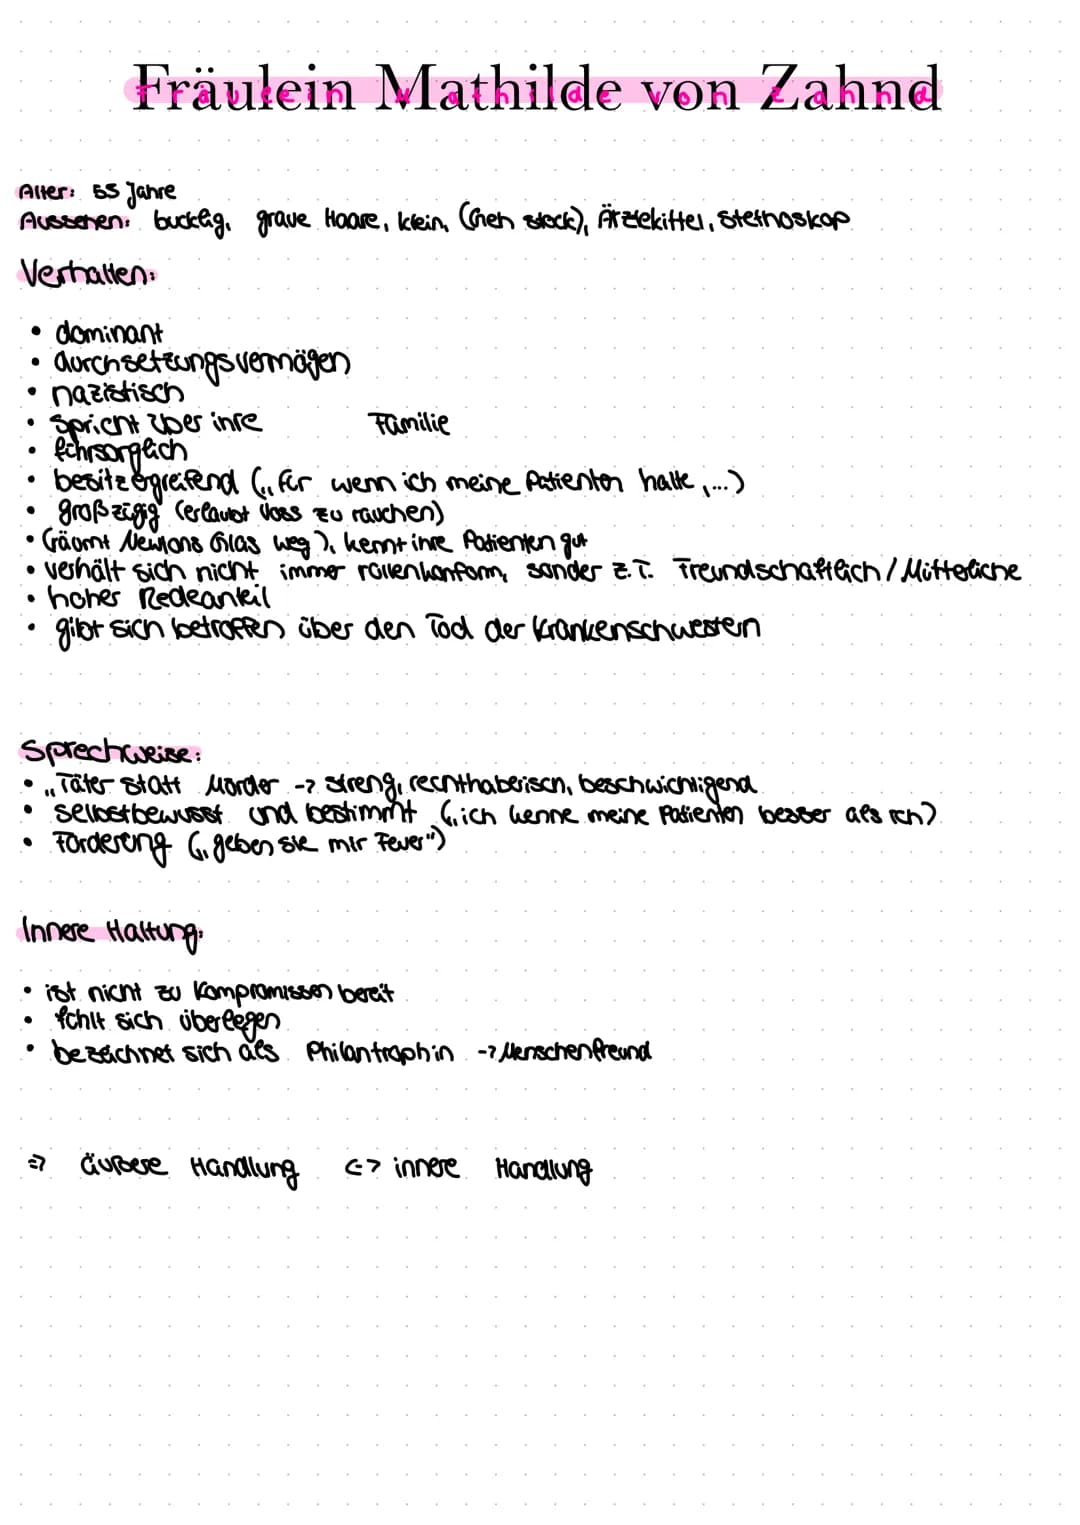 Fräulein Mathilde von Zahnd
Alter: 55 Jahre
Aussehen: bucklig, graue Haare, klein, (Geh stock), Ärztekittel, Stethoskop
Verhalten:
• dominant
• durchsetzungsvermögen
• nazistisch
• spricht über ihre Familie
• führsorglich
• besitzergreifend („für wenn ich meine Patienten halte,...)
• großzügig (erlaubt Voss zu rauchen)
• (räumt Newtons Glas weg), kennt ihre Patienten gut
• verhält sich nicht immer rollenkonform, sonder z.T. Freundschaftlich/Mütterliche
• hoher Redeanteil
• gibt sich betroffen über den Tod der Krankenschwestern
Sprechweise:
• „Täter statt Mörder -> streng, rechthaberisch, beschwichtigend
• selbstbewusst und bestimmt („ich kenne meine Patienten besser als ich)
• Forderung („geben sie mir Feuer")
Innere Haltung:
• ist nicht zu Kompromissen bereit
• fühlt sich überlegen
• bezeichnet sich als Philantrophin -> Menschenfreund
=> äußere Handlung <-> innere Handlung